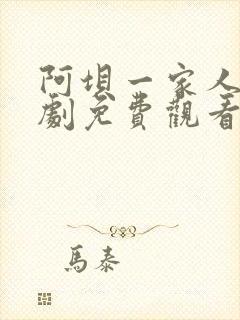 阿埧一家人
劇免費觀看
馬泰